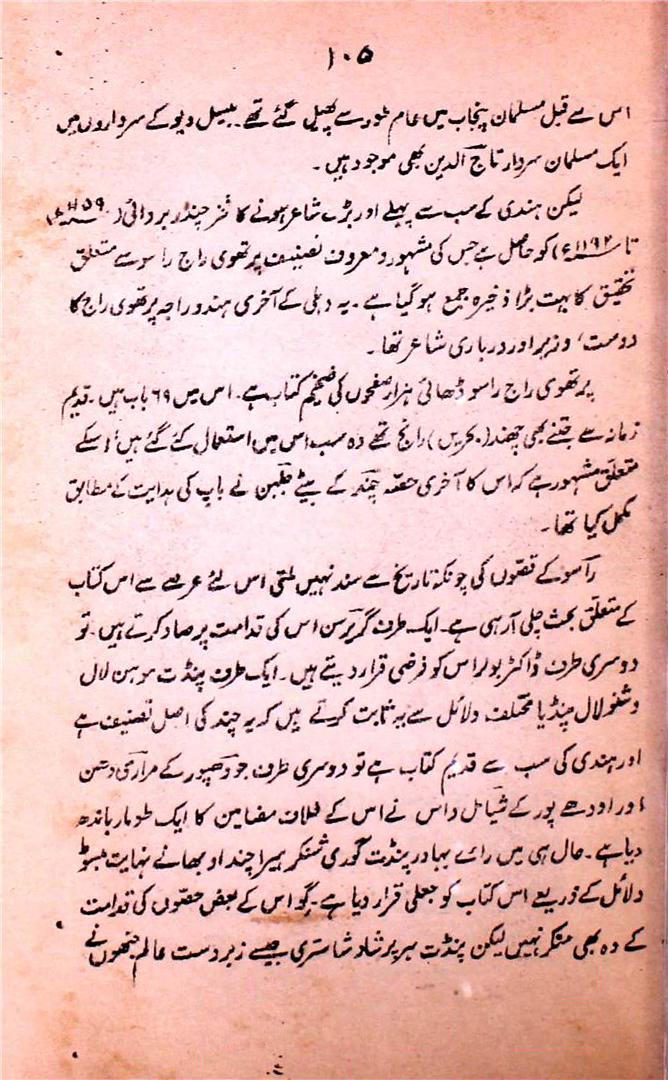 ۱۰۵
اس سے قبل مسلمان پنجاب میں عام طور سے پھیل گئے تھے۔ بیسل دیو کے سرداروں میں
ایک مسلمان سردار تاج الدین بھی موجود ہیں۔
لیکن ہندی کے سب سے پہلے اور بڑے شاعر ہونے کا فخر چندر بردائی (۱۱۵۹ء
تا ۱۱۹۲ء) کو حاصل ہے جس کی مشہور و معروف تصنیف پرتھوی راج راسو سے متعلق
تحقیق کا بہت بڑا ذخیرہ جمع ہو گیا ہے۔ یہ دہلی کے آخری ہندو راجہ پرتھوی راج کا
دوست، وزیر اور درباری شاعر تھا۔
پرتھوی راج راسو ڈھائی ہزار صفحوں کی ضخیم کتاب ہے۔ اس میں ۶۹ باب ہیں۔ قدیم
زمانہ سے جتنے بھی چھند (بحریں) رائج تھے وہ سب اس میں استعمال کئے گئے ہیں، اسکے
متعلق مشہور ہے کہ اس کا آخری حصّہ چند کے بیٹے جلہن نے باپ کی ہدایت کے مطابق
مکمل کیا تھا۔
راسو کے قصّوں کی چونکہ تاریخ سے سند نہیں ملتی اس لئے عرصے سے اس کتاب
کے متعلق بحث چلی آ رہی ہے۔ ایک طرف گریرسن اس کی قدامت پر صاد کرتے ہیں۔ تو
دوسری طرف ڈاکٹر بولر اس کو فرضی قرار دیتے ہیں۔ ایک طرف پنڈت موہن لال
وشنو لال پنڈیا مختلف دلائل سے یہ ثابت کرتے ہیں کہ یہ چند کی اصل تصنیف ہے
اور ہندی کی سب سے قدیم کتاب ہے تو دوسری طرف جودھپور کے مراری دھن
اور اودھے پور کے شیامل داس نے اس کے خلاف مضامین کا ایک طومار باندھ
دیا ہے۔ حال ہی میں رائے بہادر پنڈت گوری شنکر ہیرا چند اوبھا نے نہایت مبسوط
دلائل کے ذریعے اس کتاب کو جعلی قرار دیا ہے۔ گو اس کے بعض حصّوں کی قدامت
کے وہ بھی منکر نہیں لیکن پنڈت ہرپرشاد شاستری جیسے زبردست عالم جنھوں نے